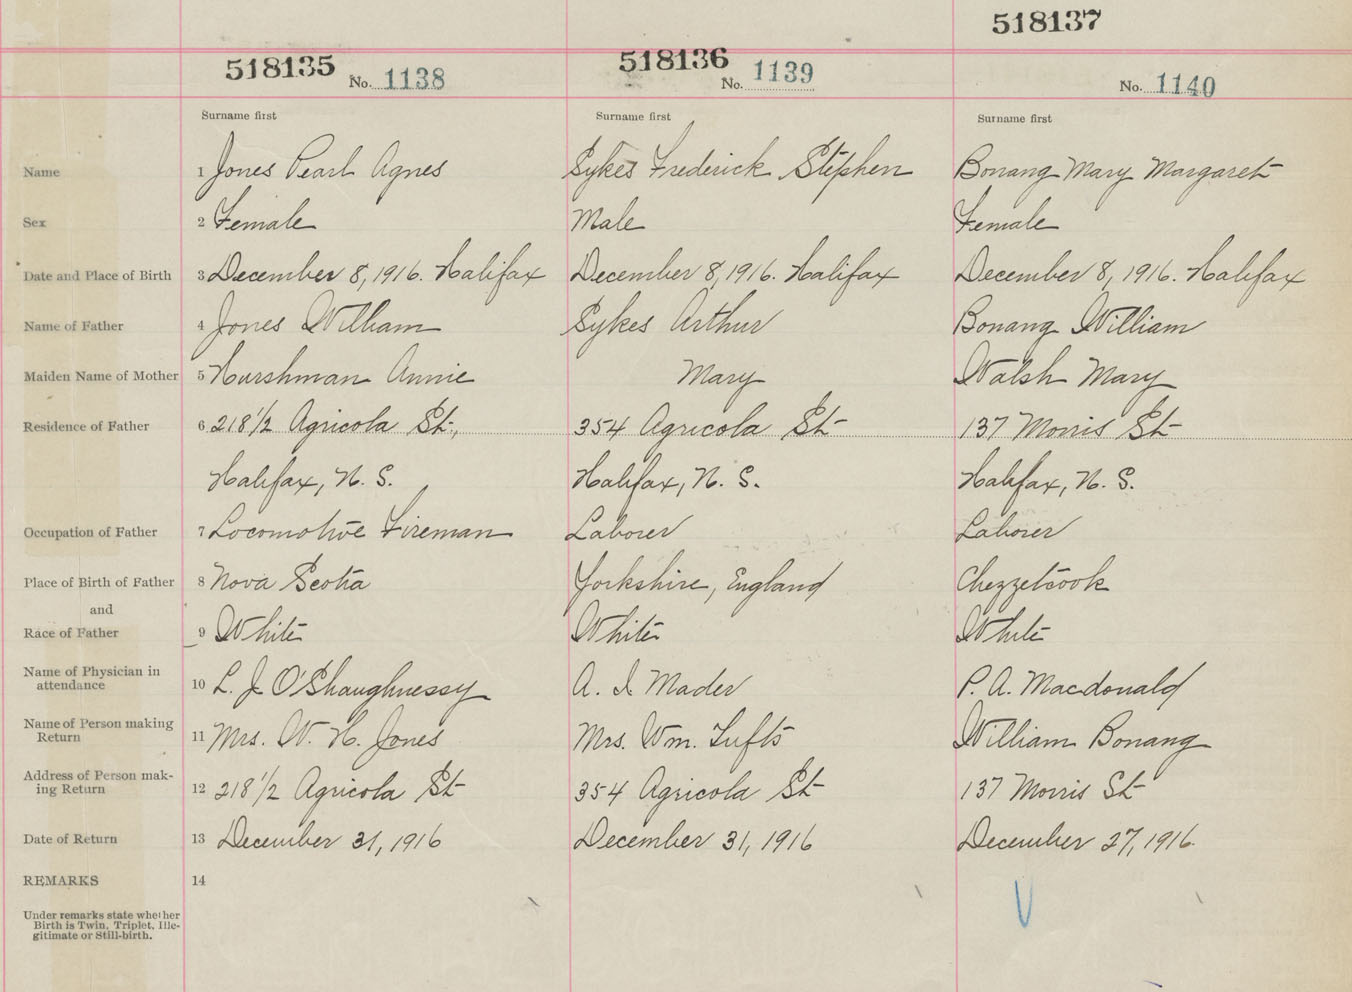 518137
518135 No. 1138 518136 No. 1139 No. 1140
Surname first Surname first Surname first
Name 1 Jones Pearl Agnes Sykes Frederick Stephen Bonang Mary Margaret
Sex 2 Female Male Female
Date and Place of Birth 3 December 8, 1916. Halifax December 8, 1916. Halifax December 8, 1916. Halifax
Name of Father 4 Jones William Sykes Arthur Bonang William
Maiden Name of Mother 5 Hurshman Annie Mary Walsh Mary
Residence of Father 6 218 1/2 Agricola St., 354 Agricola St 137 Morris St
Halifax, N. S. Halifax, N. S. Halifax, N. S.
Occupation of Father 7 Locomotive Fireman Laborer Laborer
Place of Birth of Father 8 Nova Scotia Yorkshire, England Chezzetcook
and
Race of Father 9 White White White
Name of Physician in
attendance 10 L. J. O'Shaughnessy A. I. Mader P. A. Macdonald
Name of Person making
Return 11 Mrs. W. H. Jones Mrs. Wm. Tufts William Bonang
Address of Person mak-
ing Return 12 218 1/2 Agricola St 354 Agricola St 137 Morris St
Date of Return 13 December 31, 1916 December 31, 1916 December 27, 1916.
REMARKS 14
Under remarks state whether
Birth is Twin, Triplet, Ille-
gitimate or Still-birth.